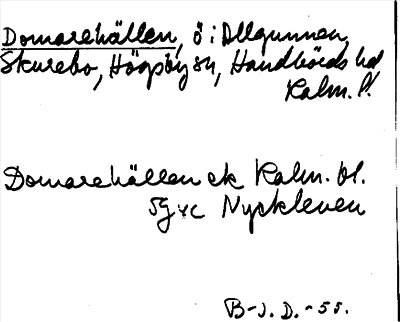 Domarehällen, ö i Allgunnen,
Skurebo, Högsby sn, Handbörds hd
Kalm. l.
Domarehällen ek Kalm. bl.
5g vc Nyckleven
B-J. D. - 55.